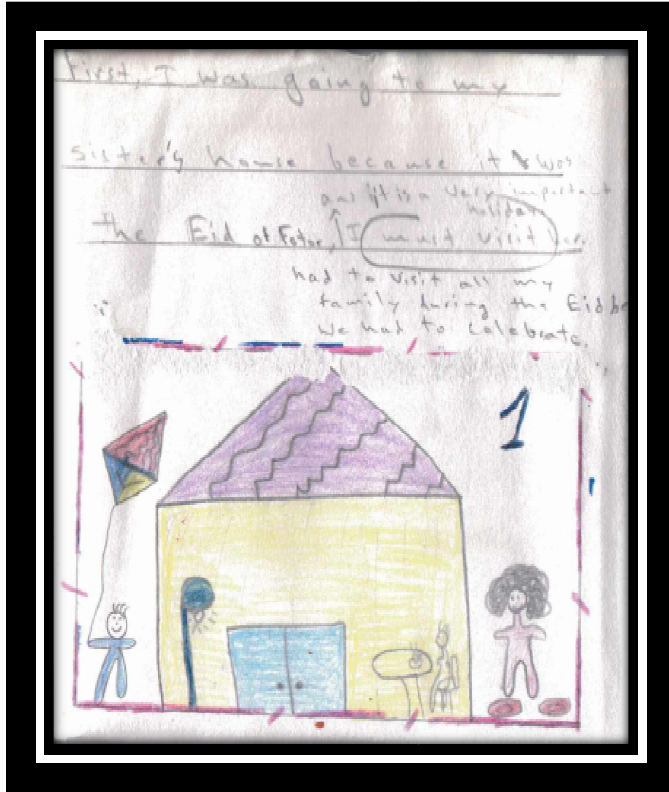 First, I was going to my
sister's house because it was
and it is a very important
holiday
the Eid of Fotor, I must visit her.
had to visit all my
family during the Eid be
we had to celebrate.
1